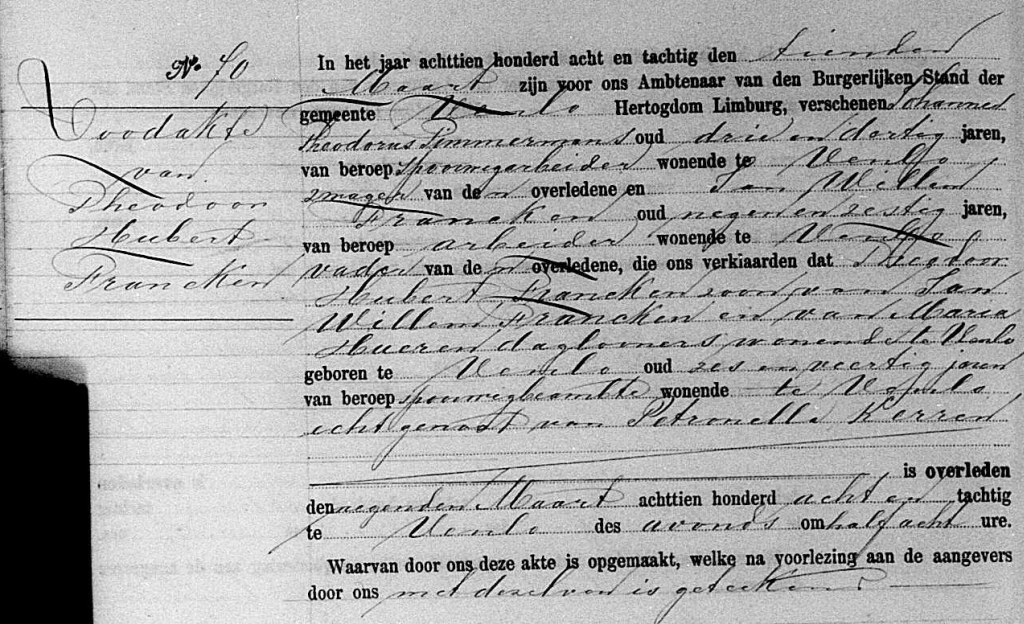 No. 70
Doodakte
van
Theodoor
Hubert
Francken
In het jaar achttien honderd acht en tachtig den tienden
Maart zijn voor ons Ambtenaar van den Burgerlijken Stand der
gemeente Venlo Hertogdom Limburg, verschenen Johannes
Theodorus Timmermans oud drie en dertig jaren,
van beroep spoorwegarbeider wonende te Venlo
zwager van den overledene en Jan Willem
Francken oud negen en zestig jaren,
van beroep arbeider wonende te Venlo
vader van den overledene, die ons verklaarden dat Theodoor
Hubert Francken zoon van Jan
Willem Francken en van Maria
Hueren daglooners wonende te Venlo
geboren te Venlo oud zes en veertig jaren
van beroep spoorwegbeambte wonende te Venlo
echtgenoot van Petronella Kerren
is overleden
den negenden Maart achttien honderd acht en tachtig
te Venlo des avonds om half acht ure.
Waarvan door ons deze akte is opgemaakt, welke na voorlezing aan de aangevers
door ons met dezelven is geteekend.